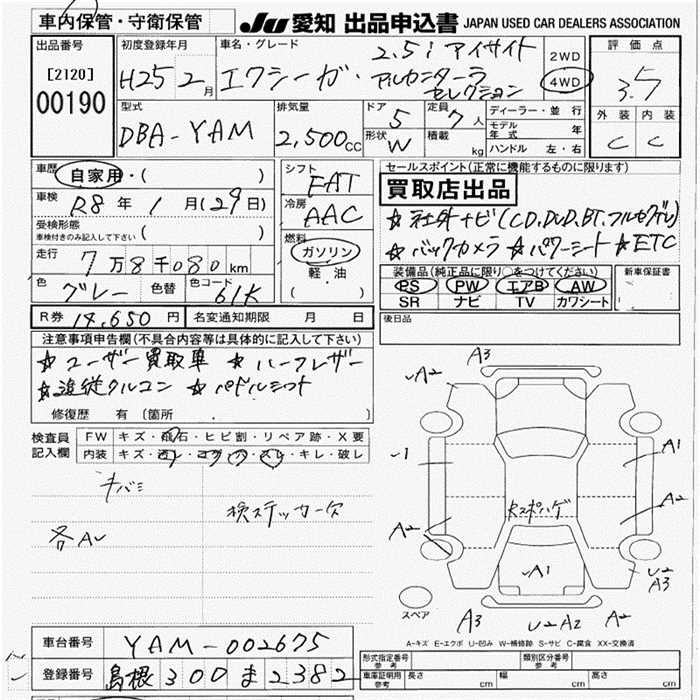 車内保管・守衛保管
JU 愛知 出品申込書 JAPAN USED CAR DEALERS ASSOCIATION
出品番号
[2120]
00190
初度登録年月
H25 2月
車名・グレード
2.5i アイサイト
エクシーガ・アルカンターラ
セレクション
2WD
4WD
評価点
3.5
外装 内装
C C
型式
DBA-YAM
排気量
2,500cc
ドア 5
形状 W
定員 7人
積載 kg
ディーラー・並行
モデル年式 年
ハンドル 左・右
車歴 自家用・( )
車検 R8年 1月(29日)
受検形態
車検付きのみ記入して下さい ( )
走行 7万8千080km
色 グレー 色替 色コード 61K
シフト
FAT
冷房
AAC
燃料
ガソリン
軽油
( )
セールスポイント(正常に機能するものに限ります)
買取店出品
☆社外ナビ(CD,DVD,BT,フルセグTV)
☆バックカメラ ☆パワーシート ☆ETC
装備品(純正品に限り○をつけてください)
PS PW エアB AW
SR ナビ TV カワシート
新車保証書
R券 14,650円 名変通知期限 月 日
後日品
注意事項申告欄(不具合内容等は具体的に記入して下さい)
☆ユーザー買取車 ☆ハーフレザー
☆追従クルコン ☆パドルシフト
修復歴 有 [箇所 ]
検査員
記入欄
FW キズ・飛石・ヒビ割・リペア跡・X要
内装 キズ・汚レ・コゲ・穴・スレ・キレ・破レ
キバミ
検ステッカー欠
各AU
A3
A2
1
A1
A2
A2
天スポハゲ
A1
U2
A3
スペア
A3
U2 A2
A2
A-キズ E-エクボ U-凹み W-補修跡 S-サビ C-腐食 XX-交換済
車台番号 YAM-002675
登録番号 島根300ま2382
形式指定番号
参考
類別区分番号
参考
車庫証明用
参考
長さ 幅 高さ